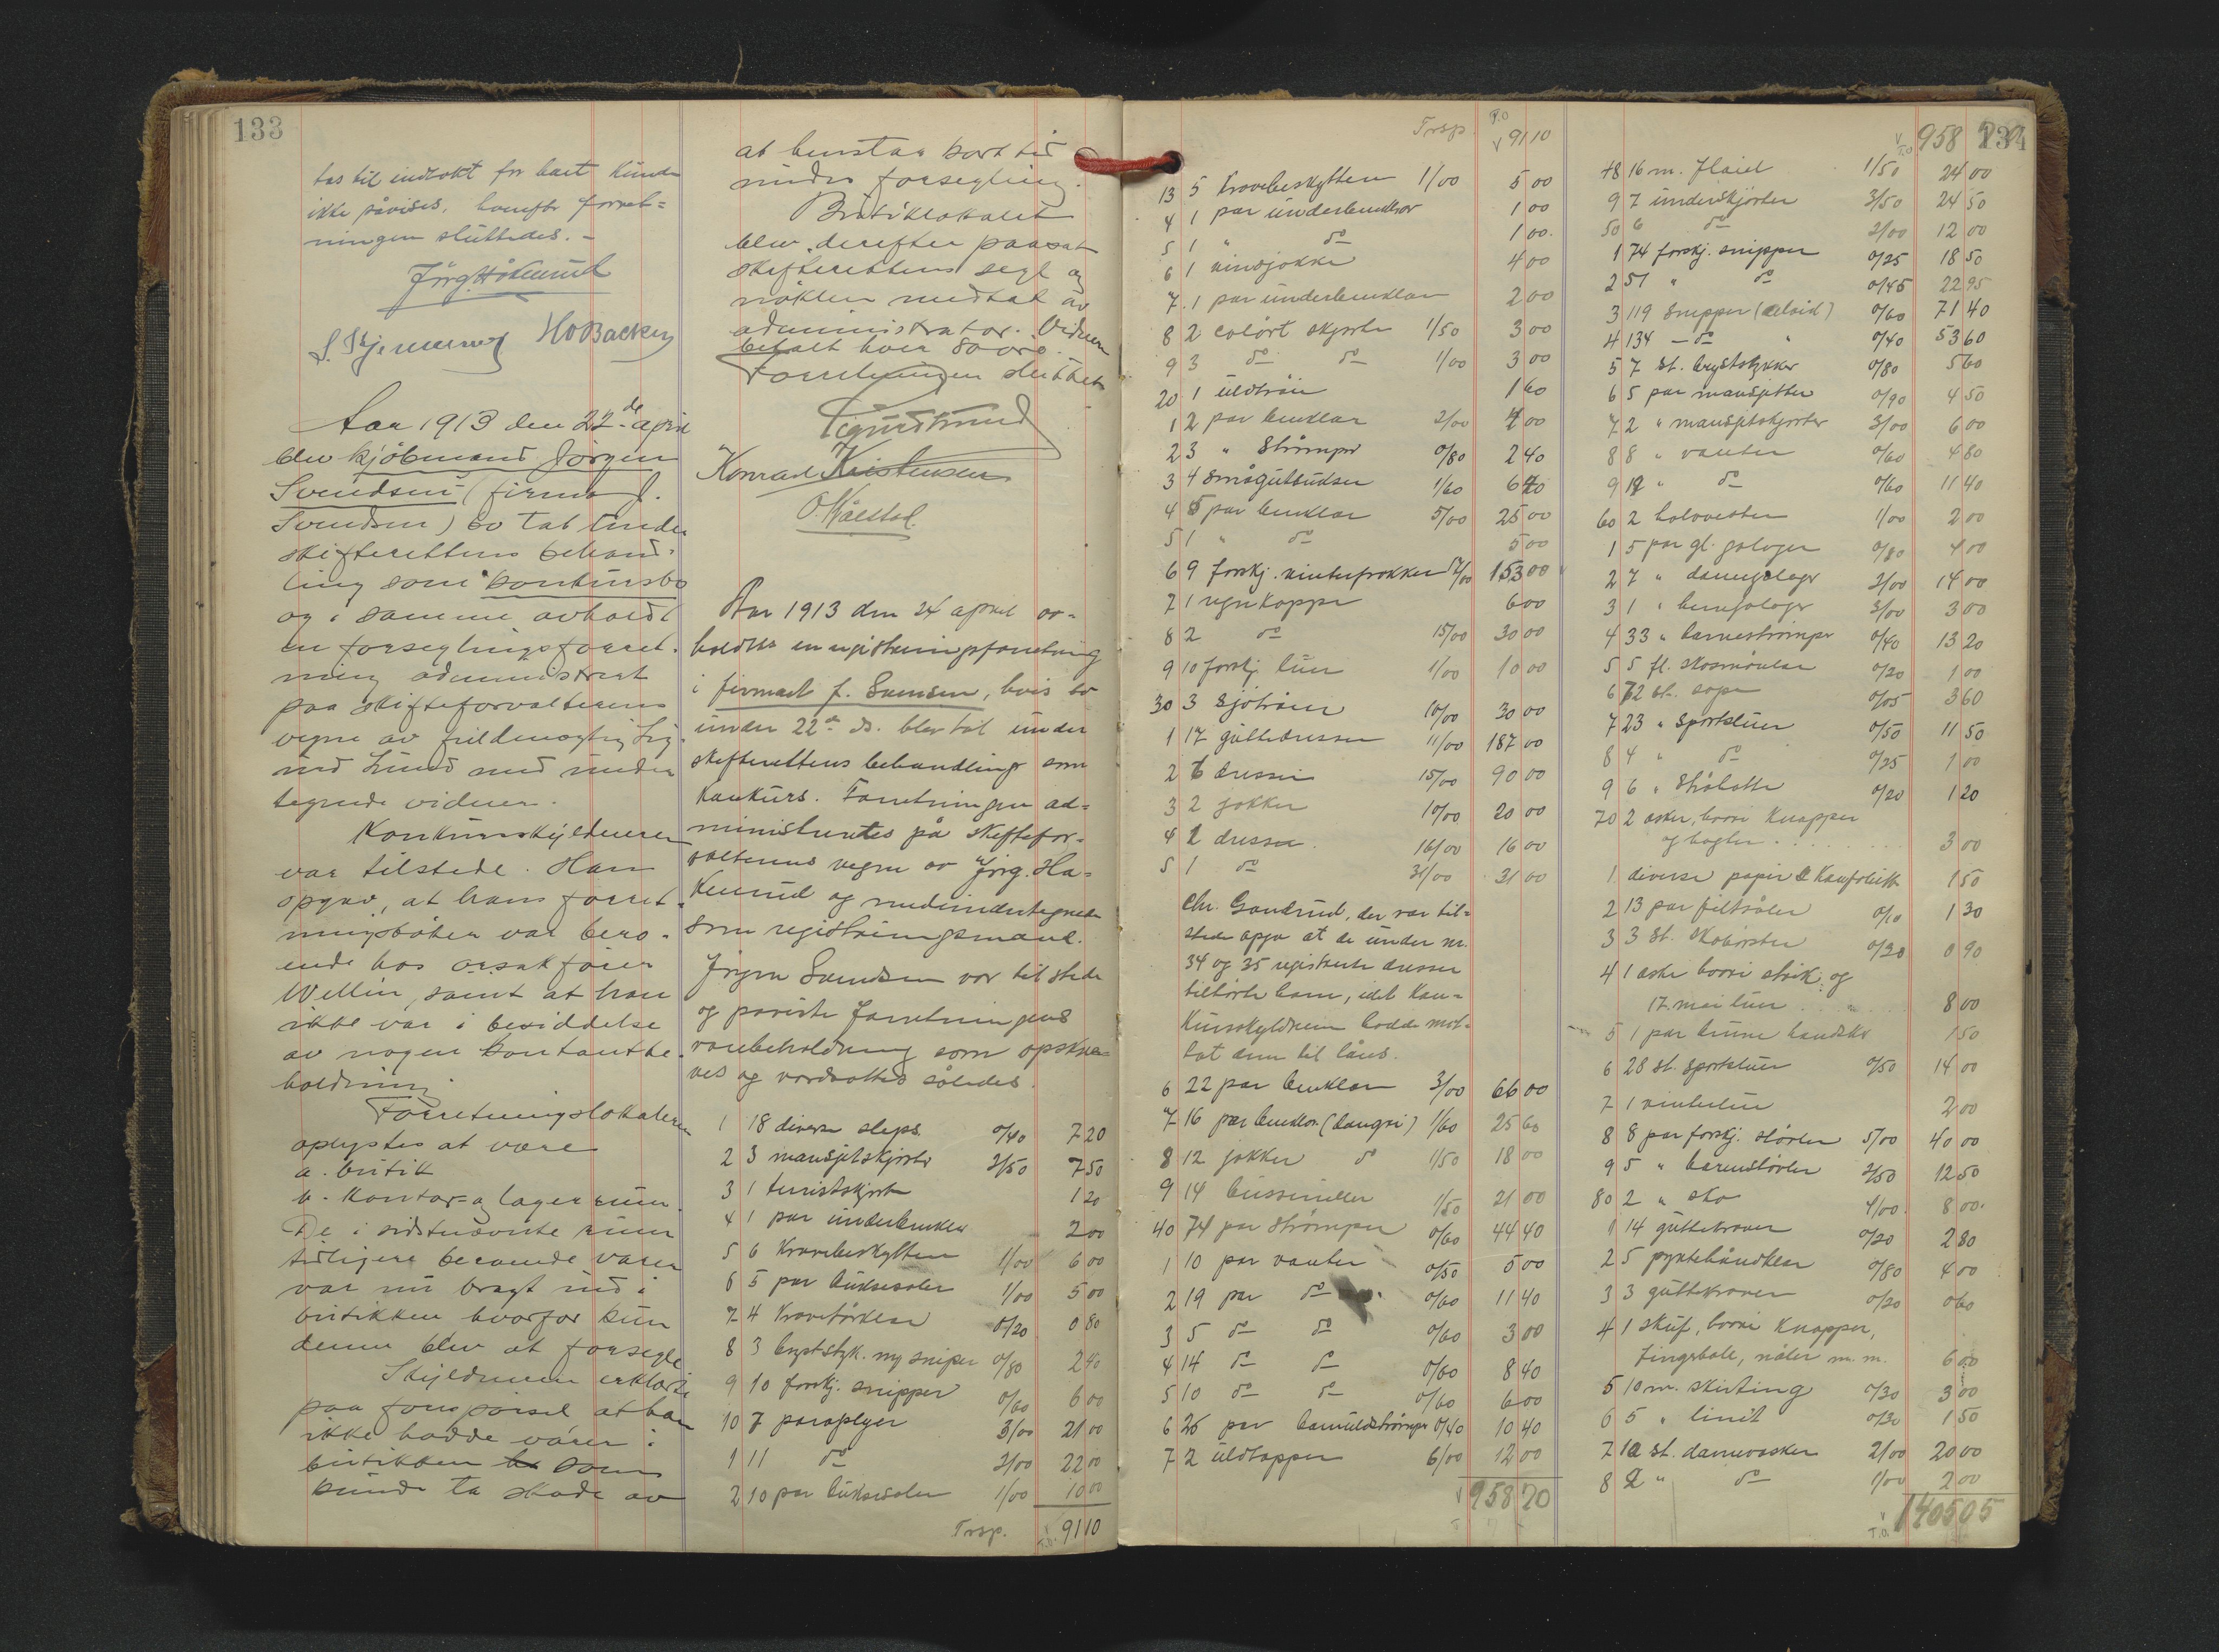 133
tas til indtækt for bart kunde
ikke påvises, hvorefter forret=
ningen sluttedes. -
Jörg. Håkenrud
S. Skjennerud HOBacken
Aar 1913 den 22de april
blev kjöbmand Jörgen
Svendsen (firma J.
Svendsen) bo tat under
skifterettens behand-
ling som konkursbo
og i samme avholdt
en forseglingsforret-
ning administrert
paa skifteforvalterens
vegne av fuldmægtig Sig-
urd Lund med under
tegnede vidner.
Konkursskyldneren
var tilstede. Han
opgav, at hans forret-
ningsböker var bero-
ende hos orsakförer
Wellin, samt at han
ikke var i besiddelse
av nogen kontantbe-
holdning.
Forretningslokalerne
oplystes at være
a. butik
b. kontor og lagerrum.
De i sidstnævnte rum
tidligere beroende varer
var nu bragt ind i
butikken hvorfor kun
denne blev at forsegle
Skyldneren erklærte
paa forespörsel at han
ikke hadde varer i
butikken som
kunde ta skade av
at henstaa kort tid
under forsegling.
Butiklokalet
blev derefter paasat
skifterettens segl og
nöklen medtat av
administrator. Vidnene
betalt hver 80 öre.
Forretningen sluttet
Sigurd Lund
Konrad Kristensen
O. Kålstad.
Aar 1913 den 24 april av-
holdtes en registreringsforretning
i firmaet J. Svensen, hvis bo
under 22de ds. blev tat under
skifterettens behandling som
konkurs. Forretningen ad=
ministrertes på skiftefor-
valterens vegne av Jörg. Hå-
kenrud og medundertegnede
som registreringsmænd.
Jörgen Svendsen var tilstede
og påviste forretningens
varebeholdning som opskre=
ves og værdsattes således.
1 18 diverse slips 0/40 7 20
2 3 mansjetskjorter 2/50 7 50
3 1 turistskjorte 1 20
4 1 par underbenklær 2 00
5 6 Kravebeskyttere 1/00 6 00
6 5 par buksesæler 1/00 5 00
7 4 Kravetörklær 0/20 0 80
8 3 bryststyk. m/ sniper 0/80 2 40
9 10 forskj. snipper 0/60 6 00
10 7 paraplyer 3/00 21 00
1 11 do 2/00 22 00
2 10 par buksesæler 1/00 10 00
Trsp. T.O. 91 10
Trsp. T.O v 91 10
13 5 Kravebeskyttere 1/00 5 00
4 1 par underbenklær 1 00
5 1 " do 1 00.
6 1 vindjakke 4 00
7. 1 par underbenklær 2 00
8 2 colört skjorte 1/50 3 00
9 3 do do 1/00 3 00
20 1 uldtröie 1 60
1 2 par benklær 2/00 4 00
2 3 " Strömper 0/80 2 40
3 4 smågutbukser 1/60 6 40
4 5 par benklær 5/00 25 00
5 1 " do 5 00
6 9 forskj. vinterfrakker 17/00 153 00
7 1 regnkappe 6 00
8 2 do 15/00 30 00
9 10 forskj. luer 1/00 10 00
30 3 Sjötröier 10/00 30 00
1 17 guttedresser 11/00 187 00
2 6 dresser 15/00 90 00
3 2 jakker 10/00 20 00
4 1 dresser. 16/00 16 00
5 1 do 31/00 31 00
Chr. Gandrud, der var til-
stede opga at de under nr.
34 og 35 registrerte dresser
tilhörte ham, idet Kon=
kursskyldneren hadde mot-
tat dem til låns.
6 22 par benklær 3/00 66 00
7 16 par benklær (dongri) 1/60 25 60
8 12 jakker do 1/50 18 00
9 14 busseruller 1/50 21 00
40 74 par strömper 0/60 44 40
1 10 par vanter 0/50 5 00
2 19 par do 0/60 11 40
3 5 do do 0/60 3 00
4 14 do do 0/60 8 40
5 10 do do 0/60 6 00
6 26 par bomuldströmper 0/40 10 40
7 2 uldtæpper 6/00 12 00
v 958 70
134
v T.O 958 70
48 16 m. flaiel 1/50 24 00
9 7 underskjörter 3/50 24 50
50 6 do 2/00 12 00
1 74 forskj. snipper 0/25 18 50
2 51 " do 0/45 22 95
3 119 Snipper (celoid) 0/60 71 40
4 134 - do " 0/40 53 60
5 7 st. bryststykker 0/80 5 60
6 5 par mansjetter 0/90 4 50
7 2 " mansjetskjorter 3/00 6 00
8 8 " vanter 0/60 4 80
9 19 " do 0/60 11 40
60 2 halsvester 1/00 2 00
1 5 par gl. galoger 0/80 4 00
2 7 " damegaloger 2/00 14 00
3 1 " herregaloger 3/00 3 00
4 33 " barneströmper 0/40 13 20
5 5 fl. skosmörelse 0/20 1 00
6 72 st. sæpe 0/05 3 60
7 23 " Sportsluer 0/50 11 50
8 4 " do 0/25 1 00
9 6 " Stråhatte 0/20 1 20
70 2 æsker, hvori Knapper
og hægter . . . . . 3 00
1 diverse papir & Konvolutter 1 50
2 13 par filtsåler 0/10 1 30
3 3 st. skobörster 0/30 0 90
4 1 æske hvori strik. og
17. mai luer . . . 8 00
5 1 par brune handsker 1 50
6 28 st. sportsluer 0/50 14 00
7 1 vinterlue 2 00
8 8 par forskj. stövler 5/00 40 00
9 5 " barnestövler 2/50 12 50
80 2 " sko 4/00 8 00.
1 14 guttekraver 0/20 2 80
2 5 pyntehåndklær 0/80 4 00
3 3 guttekraver 0/20 0 60
4 1 skuf, hvori Knapper,
fingerböle, nåler m. m. 6 00
5 10 m. skirting 0/30 3 00
6 5 " linit 0/30 1 50
7 10 st. damevæsker 2/00 20 00
8 2 " do 1/00 2 00
v T.O. 1405 05